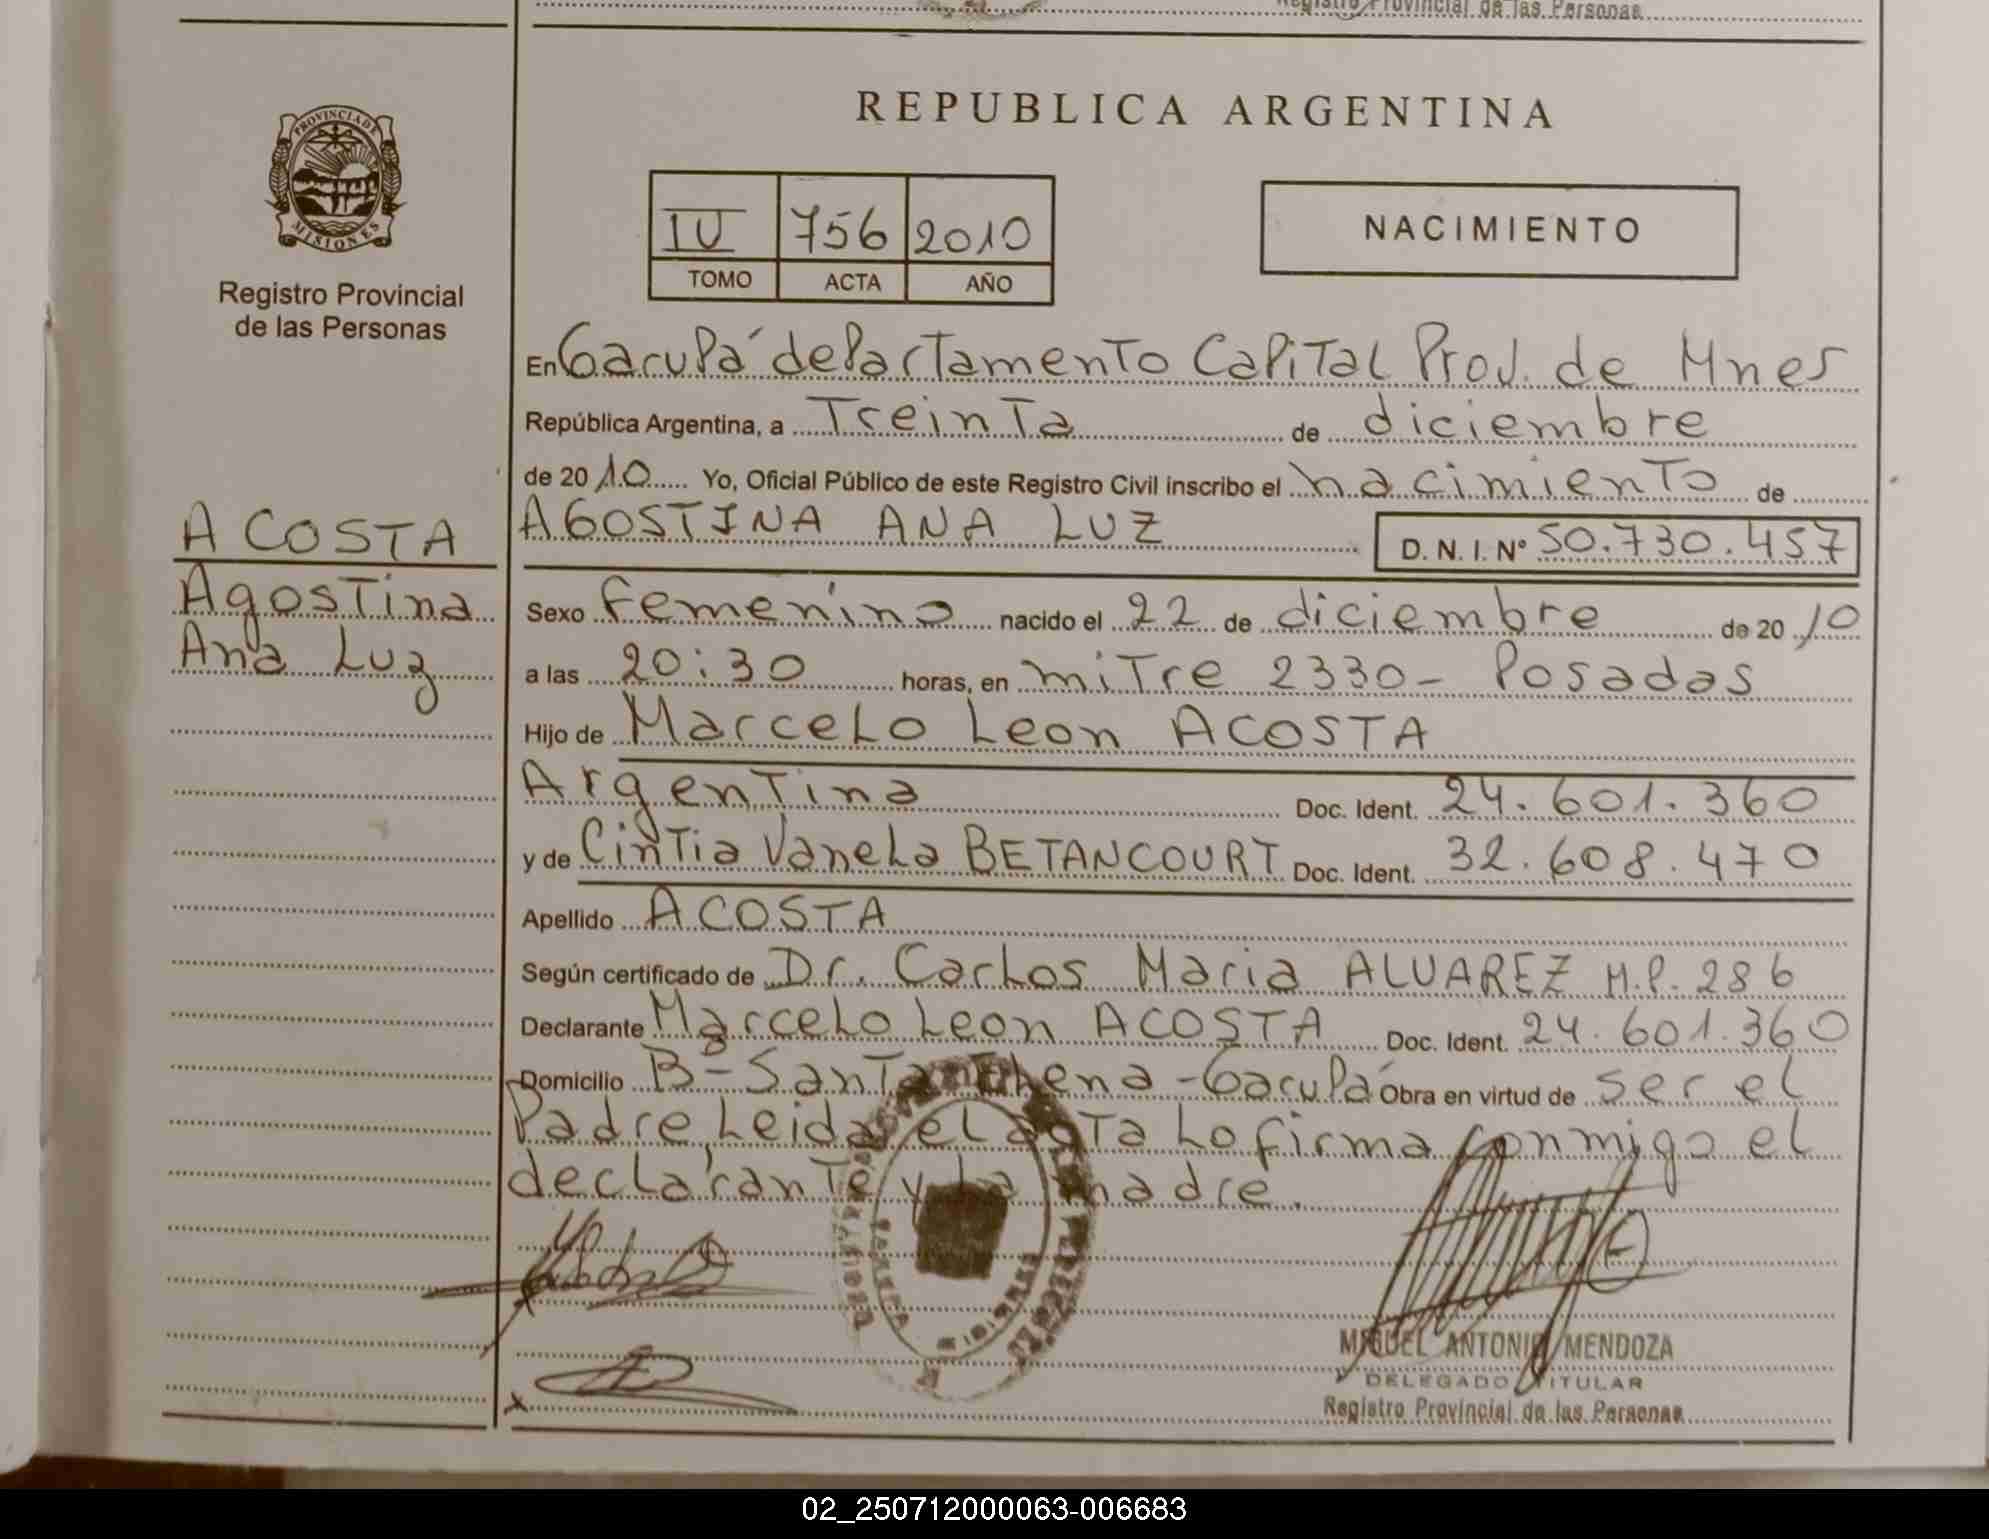 Registro Provincial de las Personas
PROVINCIA DE
MISIONES
Registro Provincial
de las Personas
REPUBLICA ARGENTINA
IV 756 2010
TOMO ACTA AÑO
NACIMIENTO
ACOSTA
Agostina
Ana Luz
En Garupá departamento Capital Prov. de Mnes
República Argentina, a Treinta de diciembre
de 2010 Yo, Oficial Público de este Registro Civil inscribo el nacimiento de
AGOSTINA ANA LUZ D. N. I. Nº 50.730.457
Sexo femenino nacido el 22 de diciembre de 2010
a las 20:30 horas, en mitre 2330- Posadas
Hijo de Marcelo Leon ACOSTA
Argentina Doc. Ident. 24.601.360
y de Cintia Vanela BETANCOURT Doc. Ident. 32.608.470
Apellido ACOSTA
Según certificado de Dr. Carlos Maria ALVAREZ M.P. 286
Declarante Marcelo Leon ACOSTA Doc. Ident. 24.601.360
Domicilio Bº- Santa Elena - Garupá Obra en virtud de ser el
Padre, Leida el acta Lo firma conmigo el
declarante y La madre.
MIGUEL ANTONIO MENDOZA
DELEGADO TITULAR
Registro Provincial de las Personas
02_250712000063-006683